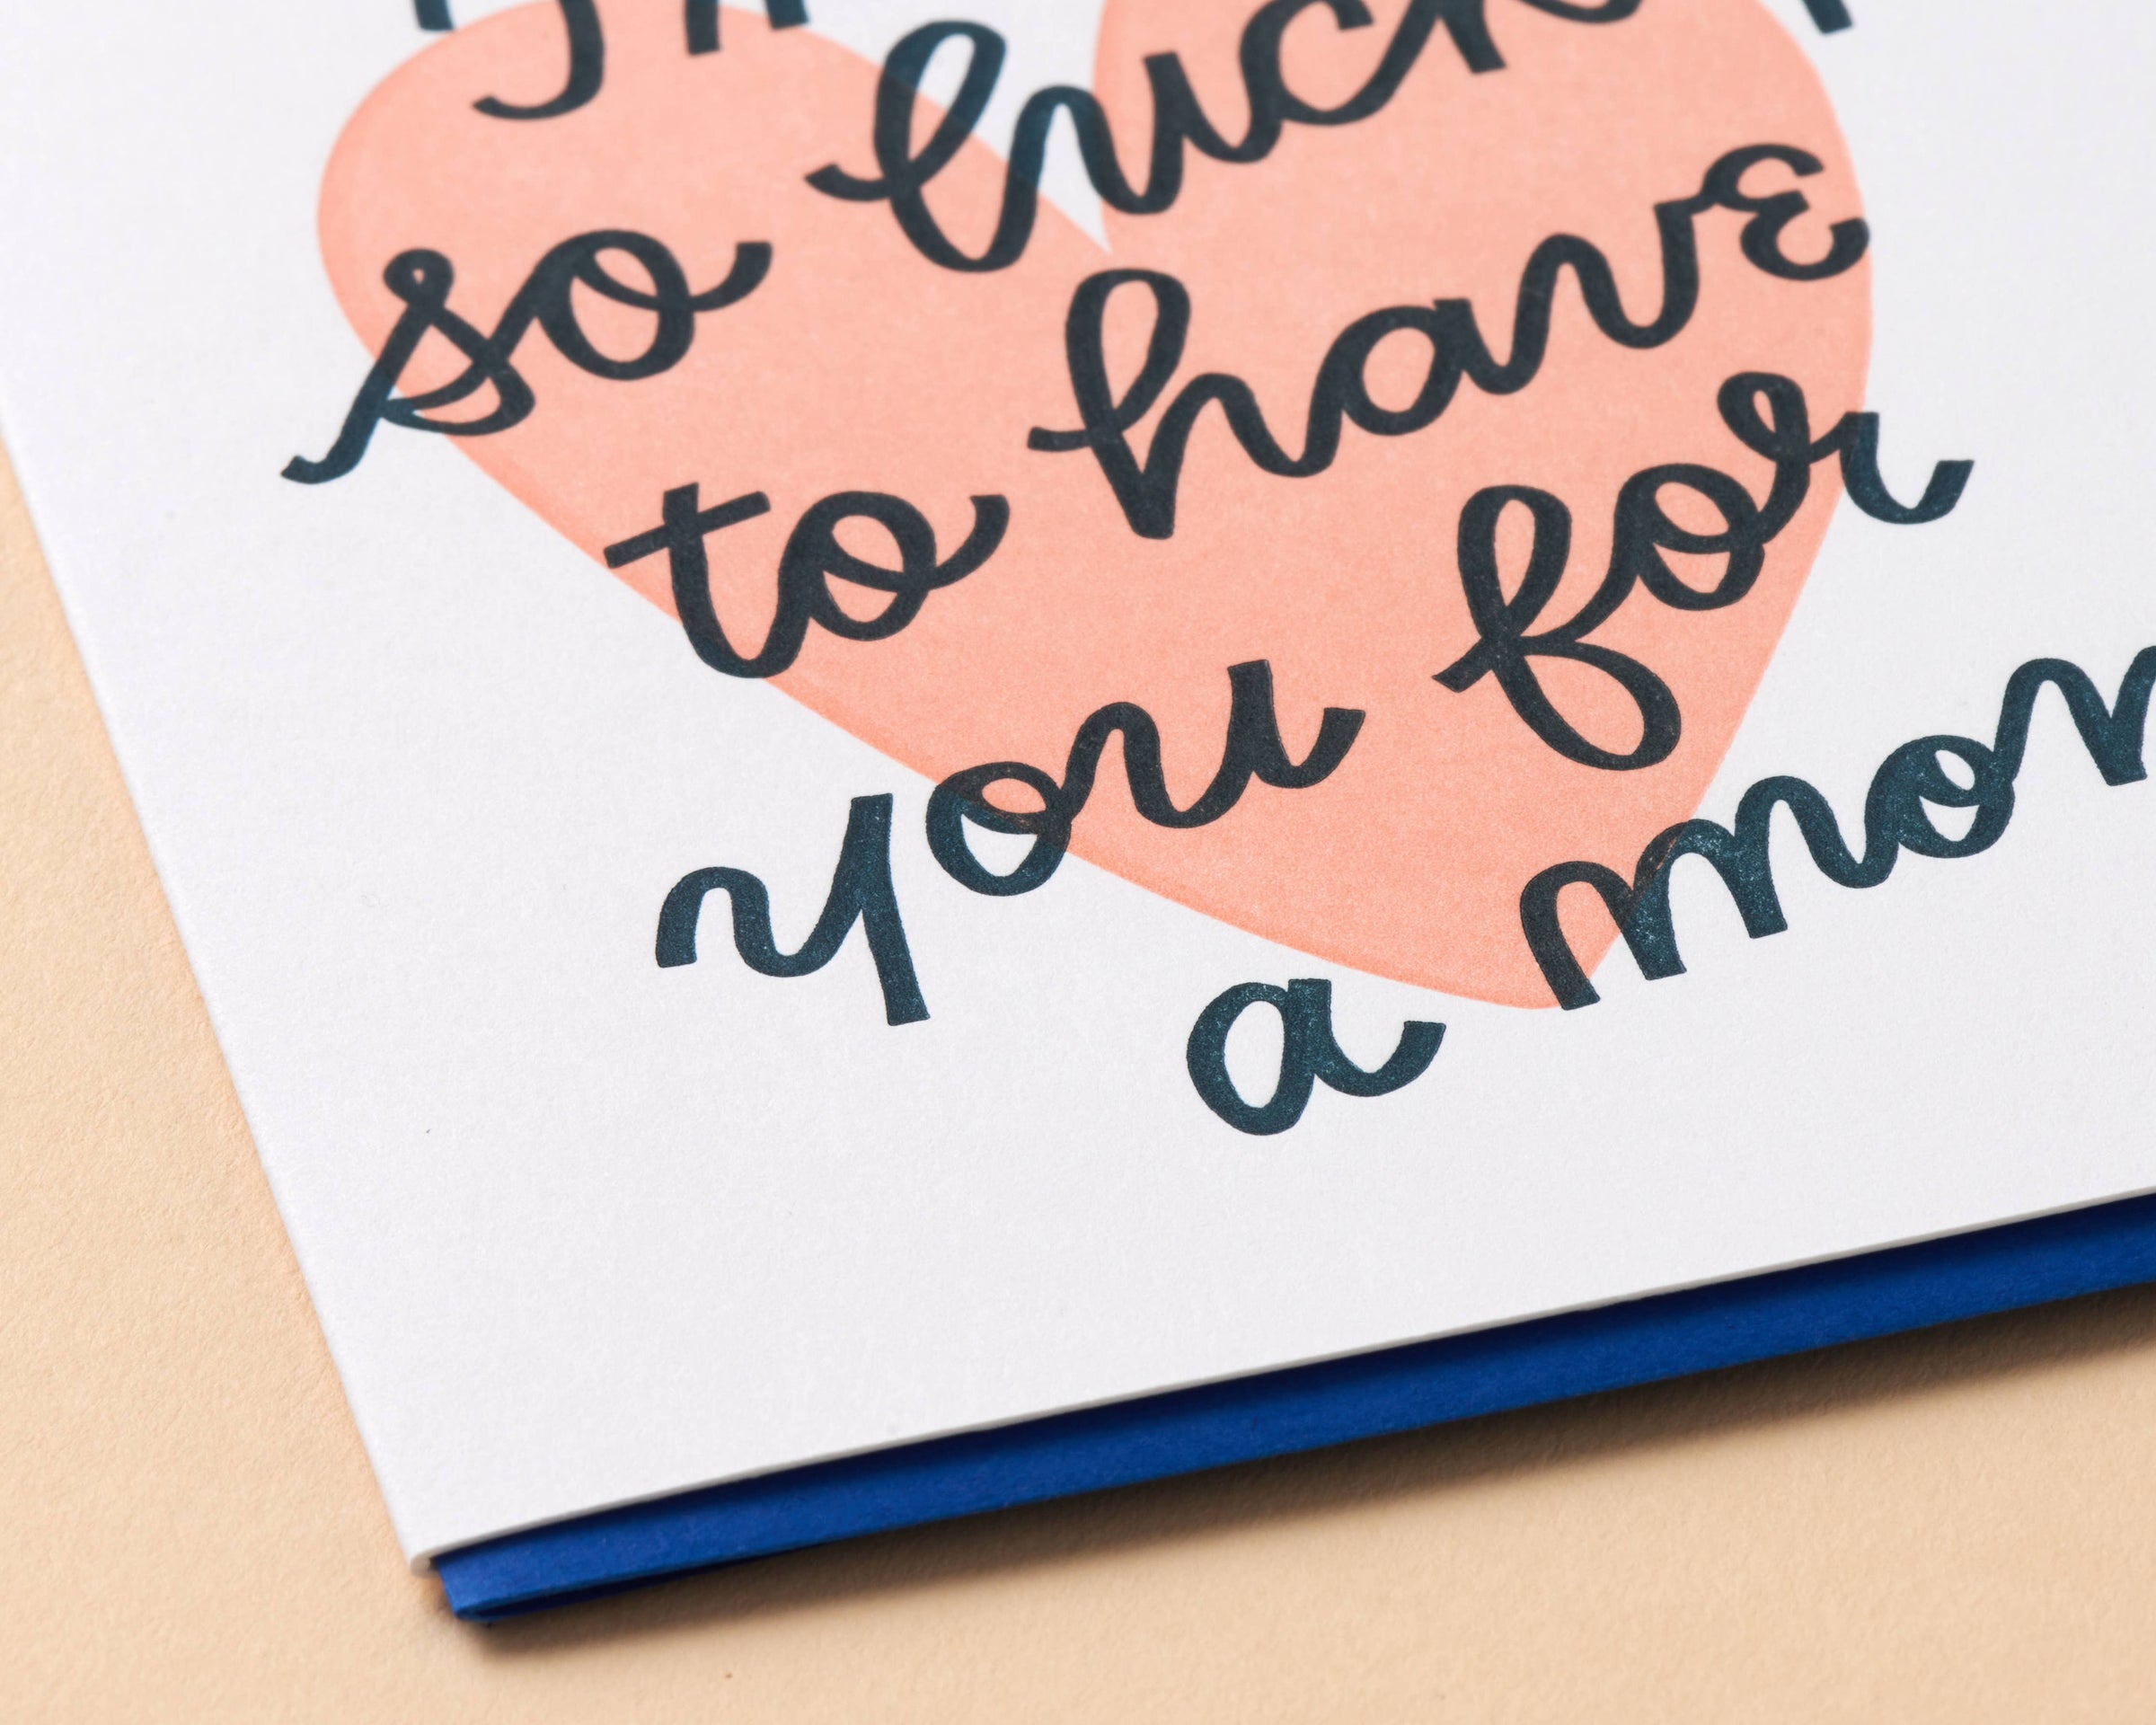 so luck
to have
you for
a mom